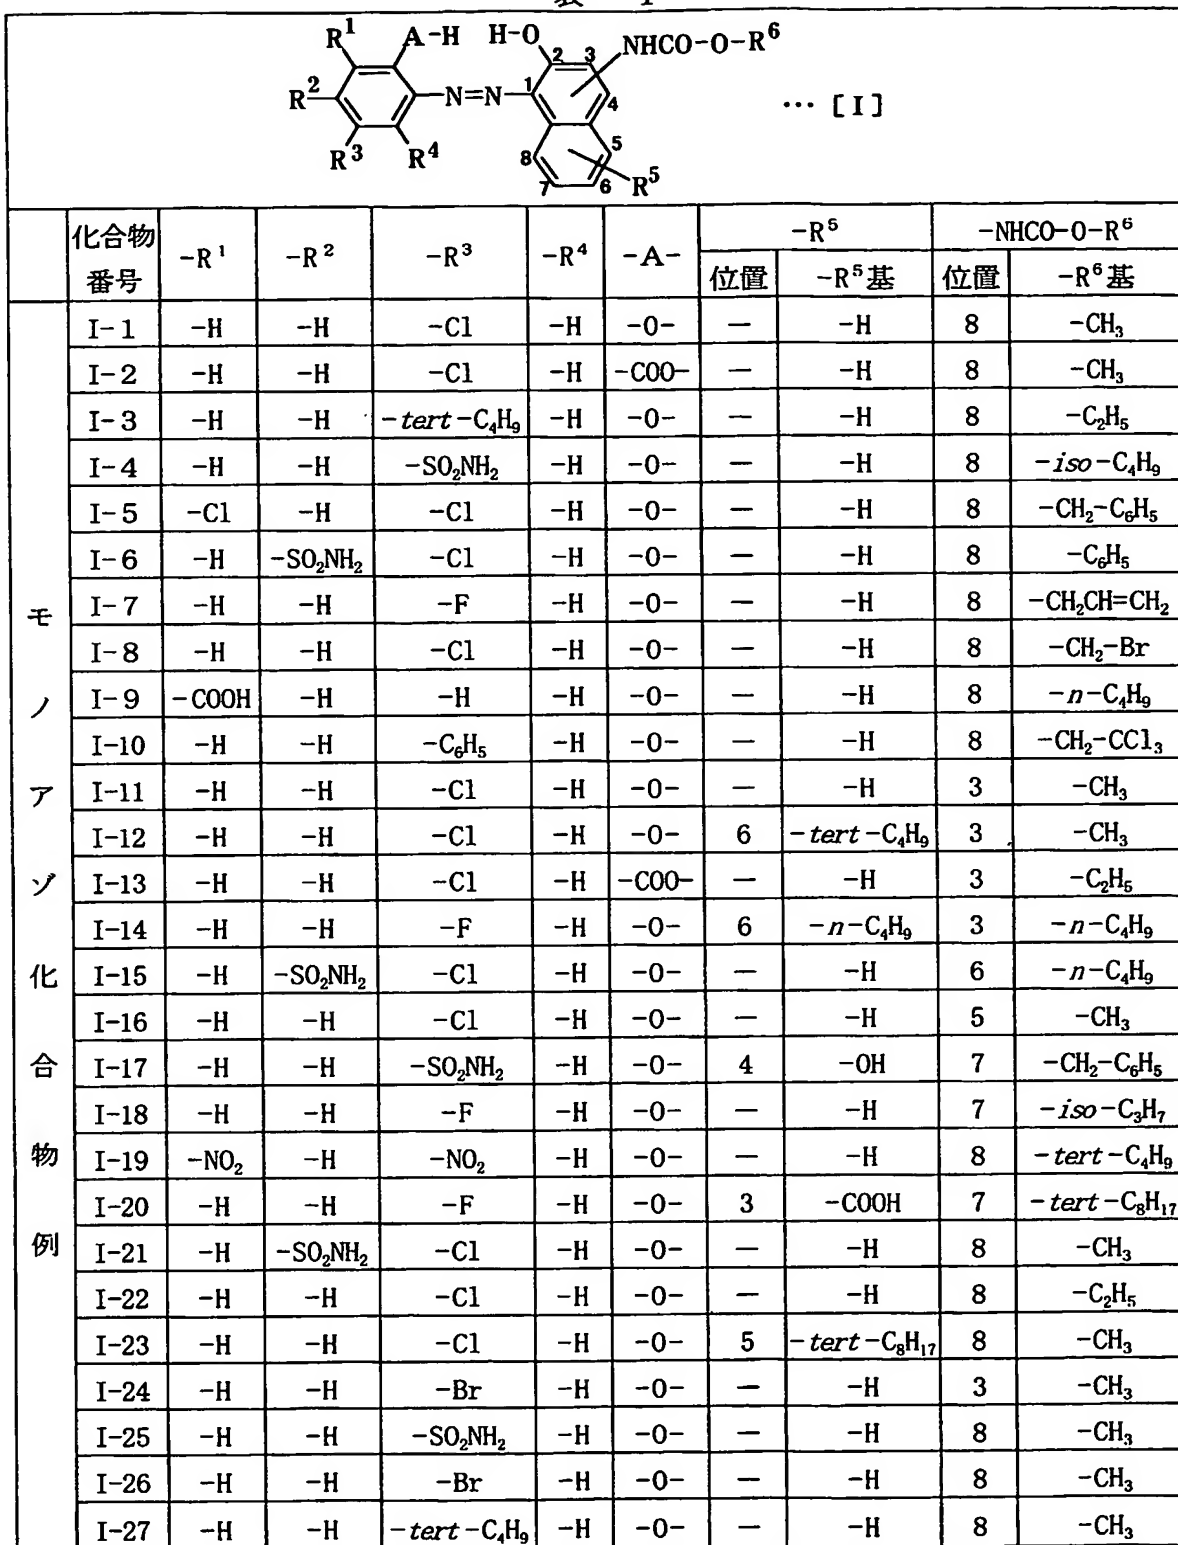 表 1
R¹ A-H H-O NHCO-O-R⁶
R² N=N 1 2 3 4 5 6 7 8 … [I]
R³ R⁴ R⁵
化合物番号 -R¹ -R² -R³ -R⁴ -A- -R⁵ -NHCO-O-R⁶
位置 -R⁵基 位置 -R⁶基
モノアゾ化合物例
I-1 -H -H -Cl -H -O- — -H 8 -CH₃
I-2 -H -H -Cl -H -COO- — -H 8 -CH₃
I-3 -H -H -tert-C₄H₉ -H -O- — -H 8 -C₂H₅
I-4 -H -H -SO₂NH₂ -H -O- — -H 8 -iso-C₄H₉
I-5 -Cl -H -Cl -H -O- — -H 8 -CH₂-C₆H₅
I-6 -H -SO₂NH₂ -Cl -H -O- — -H 8 -C₆H₅
I-7 -H -H -F -H -O- — -H 8 -CH₂CH=CH₂
I-8 -H -H -Cl -H -O- — -H 8 -CH₂-Br
I-9 -COOH -H -H -H -O- — -H 8 -n-C₄H₉
I-10 -H -H -C₆H₅ -H -O- — -H 8 -CH₂-CCl₃
I-11 -H -H -Cl -H -O- — -H 3 -CH₃
I-12 -H -H -Cl -H -O- 6 -tert-C₄H₉ 3 -CH₃
I-13 -H -H -Cl -H -COO- — -H 3 -C₂H₅
I-14 -H -H -F -H -O- 6 -n-C₄H₉ 3 -n-C₄H₉
I-15 -H -SO₂NH₂ -Cl -H -O- — -H 6 -n-C₄H₉
I-16 -H -H -Cl -H -O- — -H 5 -CH₃
I-17 -H -H -SO₂NH₂ -H -O- 4 -OH 7 -CH₂-C₆H₅
I-18 -H -H -F -H -O- — -H 7 -iso-C₃H₇
I-19 -NO₂ -H -NO₂ -H -O- — -H 8 -tert-C₄H₉
I-20 -H -H -F -H -O- 3 -COOH 7 -tert-C₈H₁₇
I-21 -H -SO₂NH₂ -Cl -H -O- — -H 8 -CH₃
I-22 -H -H -Cl -H -O- — -H 8 -C₂H₅
I-23 -H -H -Cl -H -O- 5 -tert-C₈H₁₇ 8 -CH₃
I-24 -H -H -Br -H -O- — -H 3 -CH₃
I-25 -H -H -SO₂NH₂ -H -O- — -H 8 -CH₃
I-26 -H -H -Br -H -O- — -H 8 -CH₃
I-27 -H -H -tert-C₄H₉ -H -O- — -H 8 -CH₃